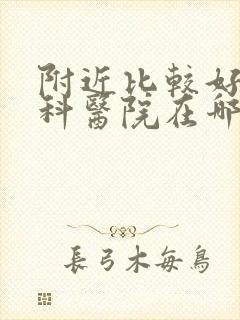 附近比較好
科醫院在哪
長弓木每鳥